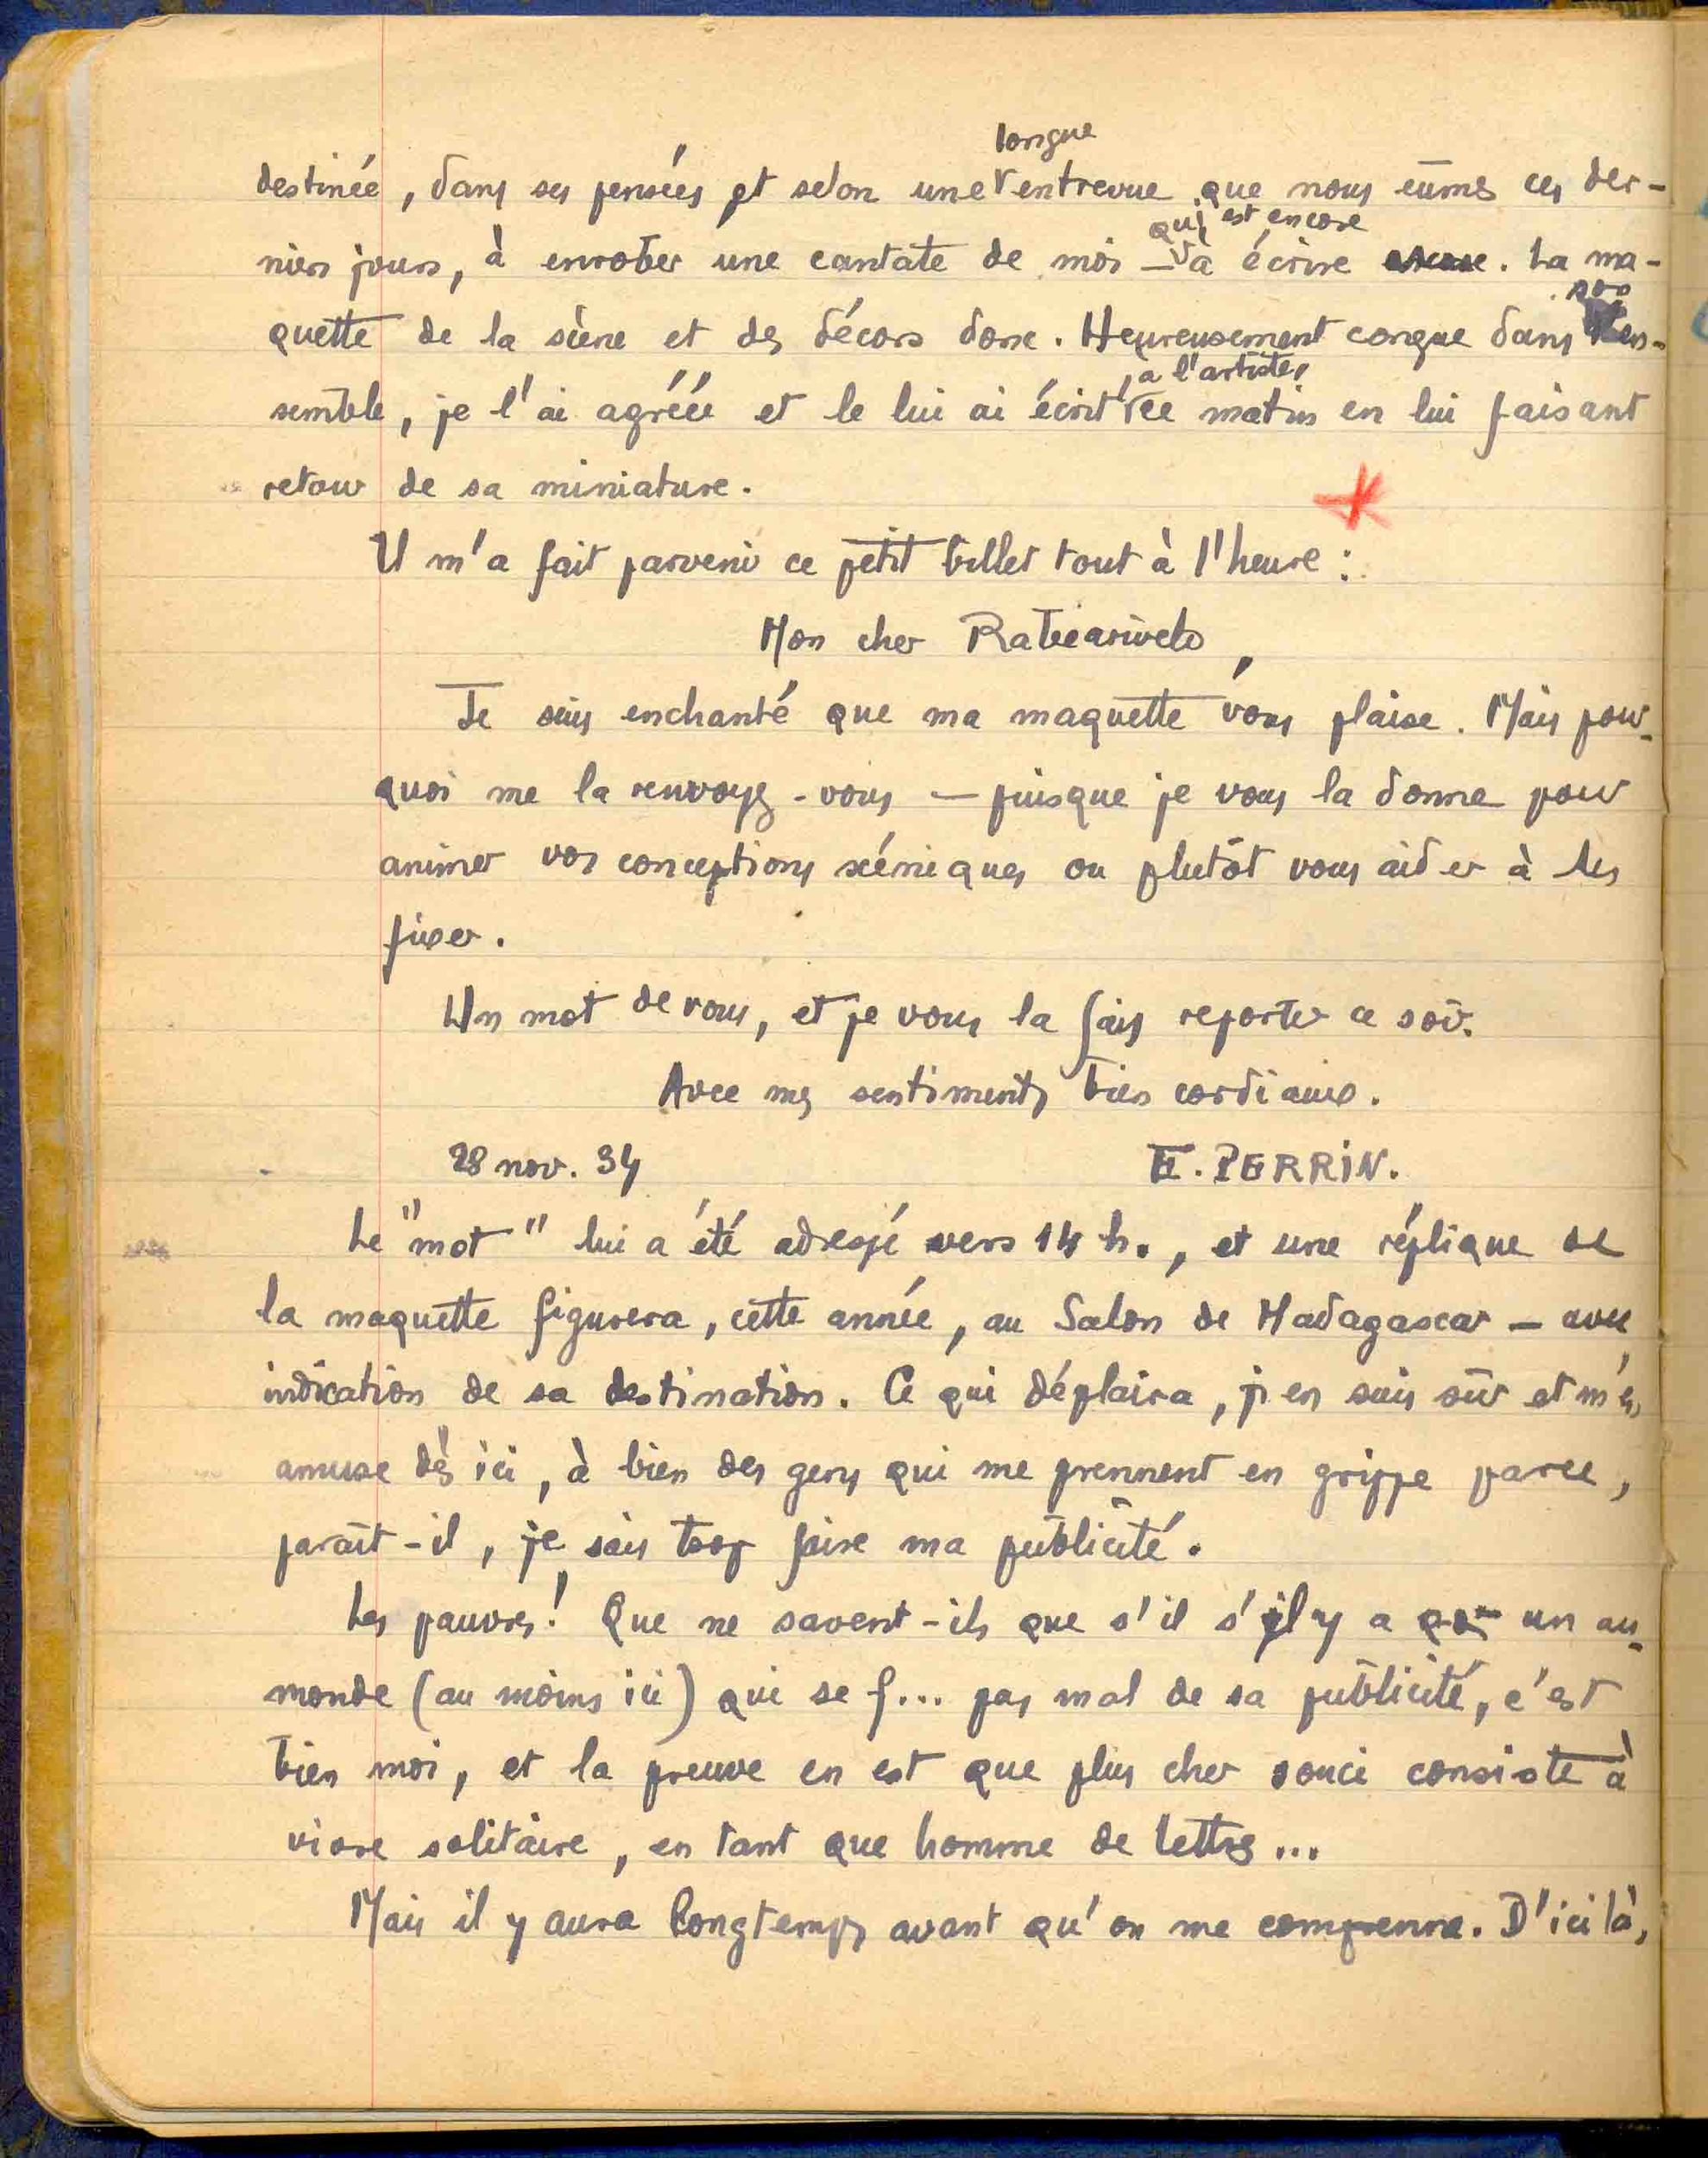 longue
destinée, dans ses pensées et selon une entrevue que nous eûmes ces der-
qui est encore
niers jours, à enrober une cantate de moi — à écrire encore. La ma-
son
quette de la scène et des décors donc. Heureusement conçue dans l'en-
à l'artiste,
semble, je l'ai agréée et le lui ai écrit ce matin en lui faisant
retour de sa miniature.
Il m'a fait parvenir ce petit billet tout à l'heure :
Mon cher Rabearivelo,
Je suis enchanté que ma maquette vous plaise. Mais pour-
quoi me la renvoyez-vous — puisque je vous la donne pour
animer vos conceptions scéniques ou plutôt vous aider à les
fixer.
Un mot de vous, et je vous la fais reporter ce soir.
Avec mes sentiments bien cordiaux.
28 nov. 34 E. PERRIN.
Le "mot" lui a été adressé vers 14 h., et une réplique de
la maquette figurera, cette année, au Salon de Madagascar — avec
indication de sa destination. Ce qui déplaira, j'en suis sûr et m'en
amuse dès ici, à bien des gens qui me prennent en grippe parce,
paraît-il, je sais trop faire ma publicité.
Les pauvres! Que ne savent-ils que s'il s'il y a un au
monde (au moins ici) qui se f... pas mal de sa publicité, c'est
bien moi, et la preuve en est que plus cher souci consiste à
vivre solitaire, en tant que homme de lettres...
Mais il y aura longtemps avant qu'on me comprenne. D'ici là,